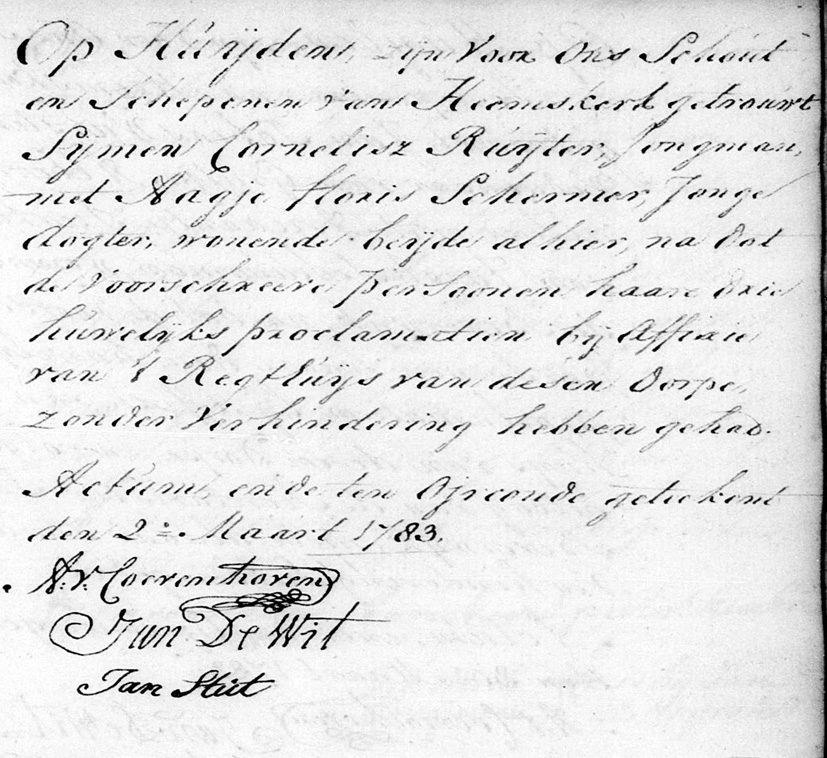 Op Huijdent, zijn Voor Ons Schout
en Schepenen van Heemskerk getrouwt
Sijmen Cornelisz Ruijter, Jongman,
met Aagje floris Schermer, Jonge
dogter, wonende beijde alhier, na dat
de Voorschreeve persoonen haare drie
huwelijks proclamatien bij Affixie
van 't Regthuijs van desen dorpe,
zonder Verhindering hebben gehad.
Actum, ende ten Oirconde geteekent
den 2e Maart 1783.
A.V. Coevenhoven
Jan De Wit
Jan Stut